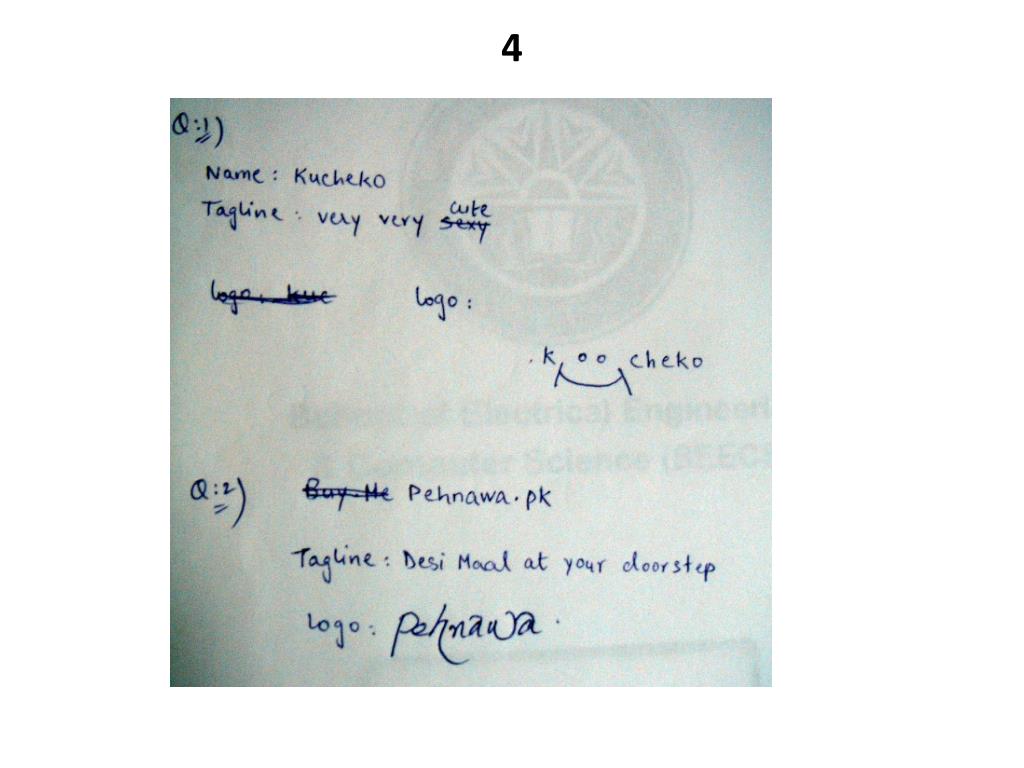 4
Q:1)
Name: Kucheko
Tagline: very very sexy cute
logo: kuc logo:
.k oo cheko
School of Electrical Engineeri
& Computer Science (SEECS
Q:2) Buy.Me Pehnawa.pk
Tagline: Desi Maal at your doorstep
logo: pehnawa.